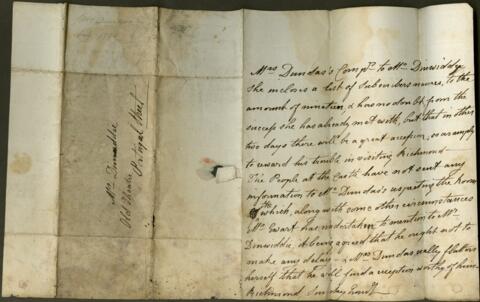 Mr Dinwiddie
Old Theatre
Portugal Street
Mrs Dundas's Compts to Mr Dinwiddie
She incloses a list of Subscribers names, to the
amount of nineteen, & has no doubt from the
success she has already met with, but that in other
two days there will be a great accession, so as amply
to reward his trouble in visiting Richmond—
The People at the Castle have not sent any
information to Mrs Dundas's respecting the Room
which, along with some other circumstances
Mr Ewart has undertaken to mention to Mr
Dinwiddie. It being agreed that he ought not to
make any delay— & Mrs Dundas really flatters
herself that he will find a reception worthy of him—
Richmond Sunday